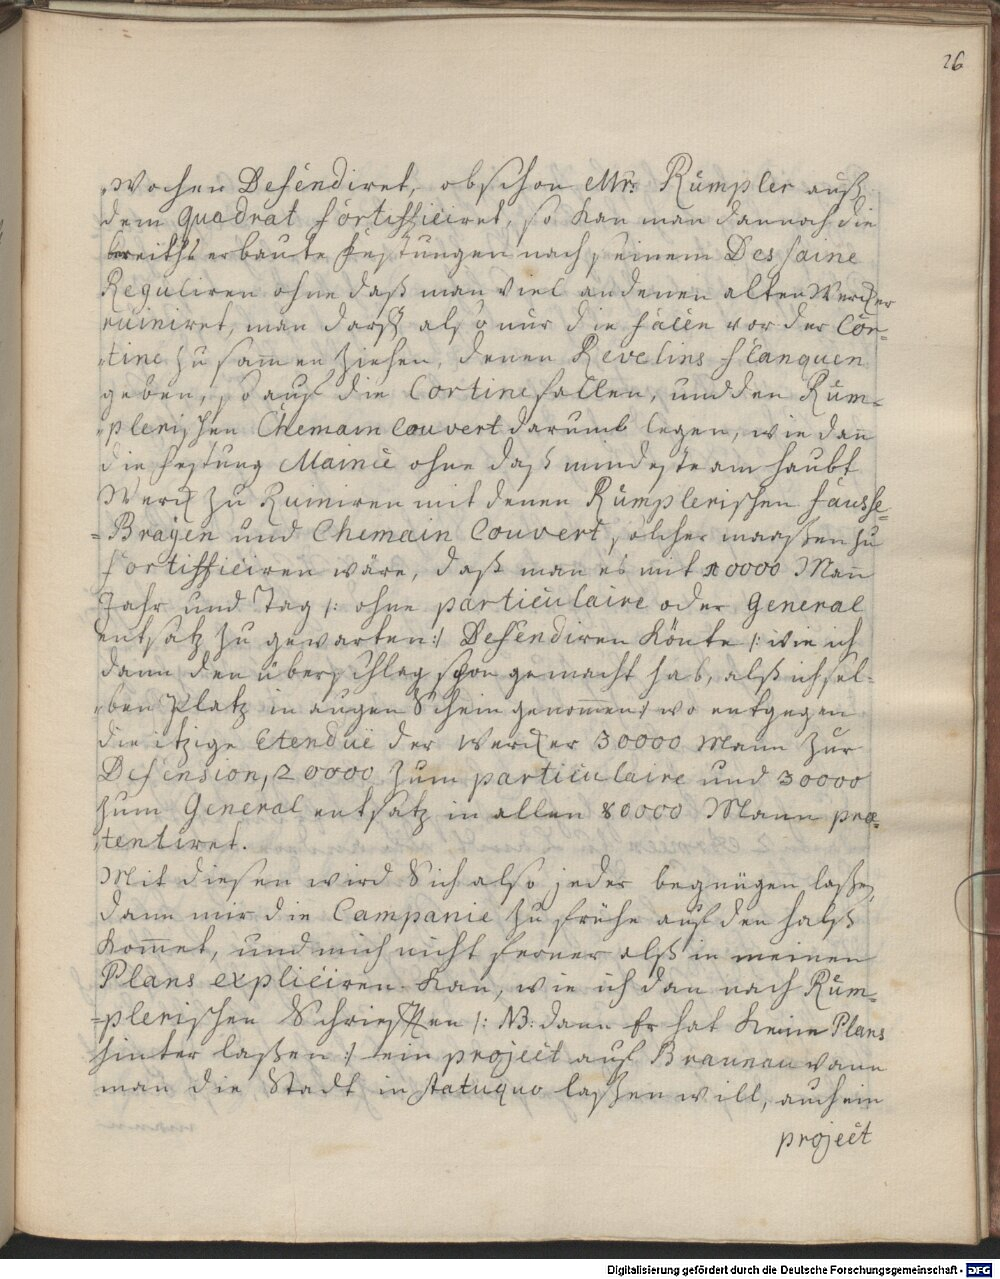 26
Wochen Defendiret, obschon Mr: Rümpler auß
dem quadrat fortifficiret, so kan man dannoch die
bereiths erbaute Festungen nach seinem Dessaine
Reguliren ohne daß man viel an denen alten Wercker
ruiniret, man darff also nur die face vor der Cor-
tine zu sam̅en ziehen, denen Revelins flanquen
geben, so auf die Cortine fallen, und den Rüm-
plerischen Chemain Couvert darumb legen, wie dan̅
die Festung ohne daß mindeste am haubt
Werck zu Ruiniren mit denen Rümplerischen fausse-
Brayen und Chemain Couvert, solcher maaßen zu
fortifficiren wäre, daß man es mit 10000 Man̅
Jahr und Tag /: ohne particulaire oder General
entsatz zu gewarten :/ Defendiren könte /: wie ich
dann den überschlag schon gemacht hab, alß ich sel-
ben Platz in augen Schein genom̅en :/ wo entgegen
die itzige Etenduë der Wercker 30000 Mann zur
Defension, 20000 zum particulaire und 30000
zum General entsatz in allen 80000 Mann præ-
tentiret.
Mit diesen wird Sich also jeder begnügen laßen,
dann mir die Campanie zu frühe auf den halß
kom̅et, und mich nicht ferner alß in meinen
Plans expliciren kan, wie ich dan nach Rüm-
plerischen Schriefften /: NB: dann Er hat keine Plans
hinter laßen :/ ein project auf Braunau wann
man die Stadt in statuquo laßen will, auch ein
project
Digitalisierung gefördert durch die Deutsche Forschungsgemeinschaft - DFG